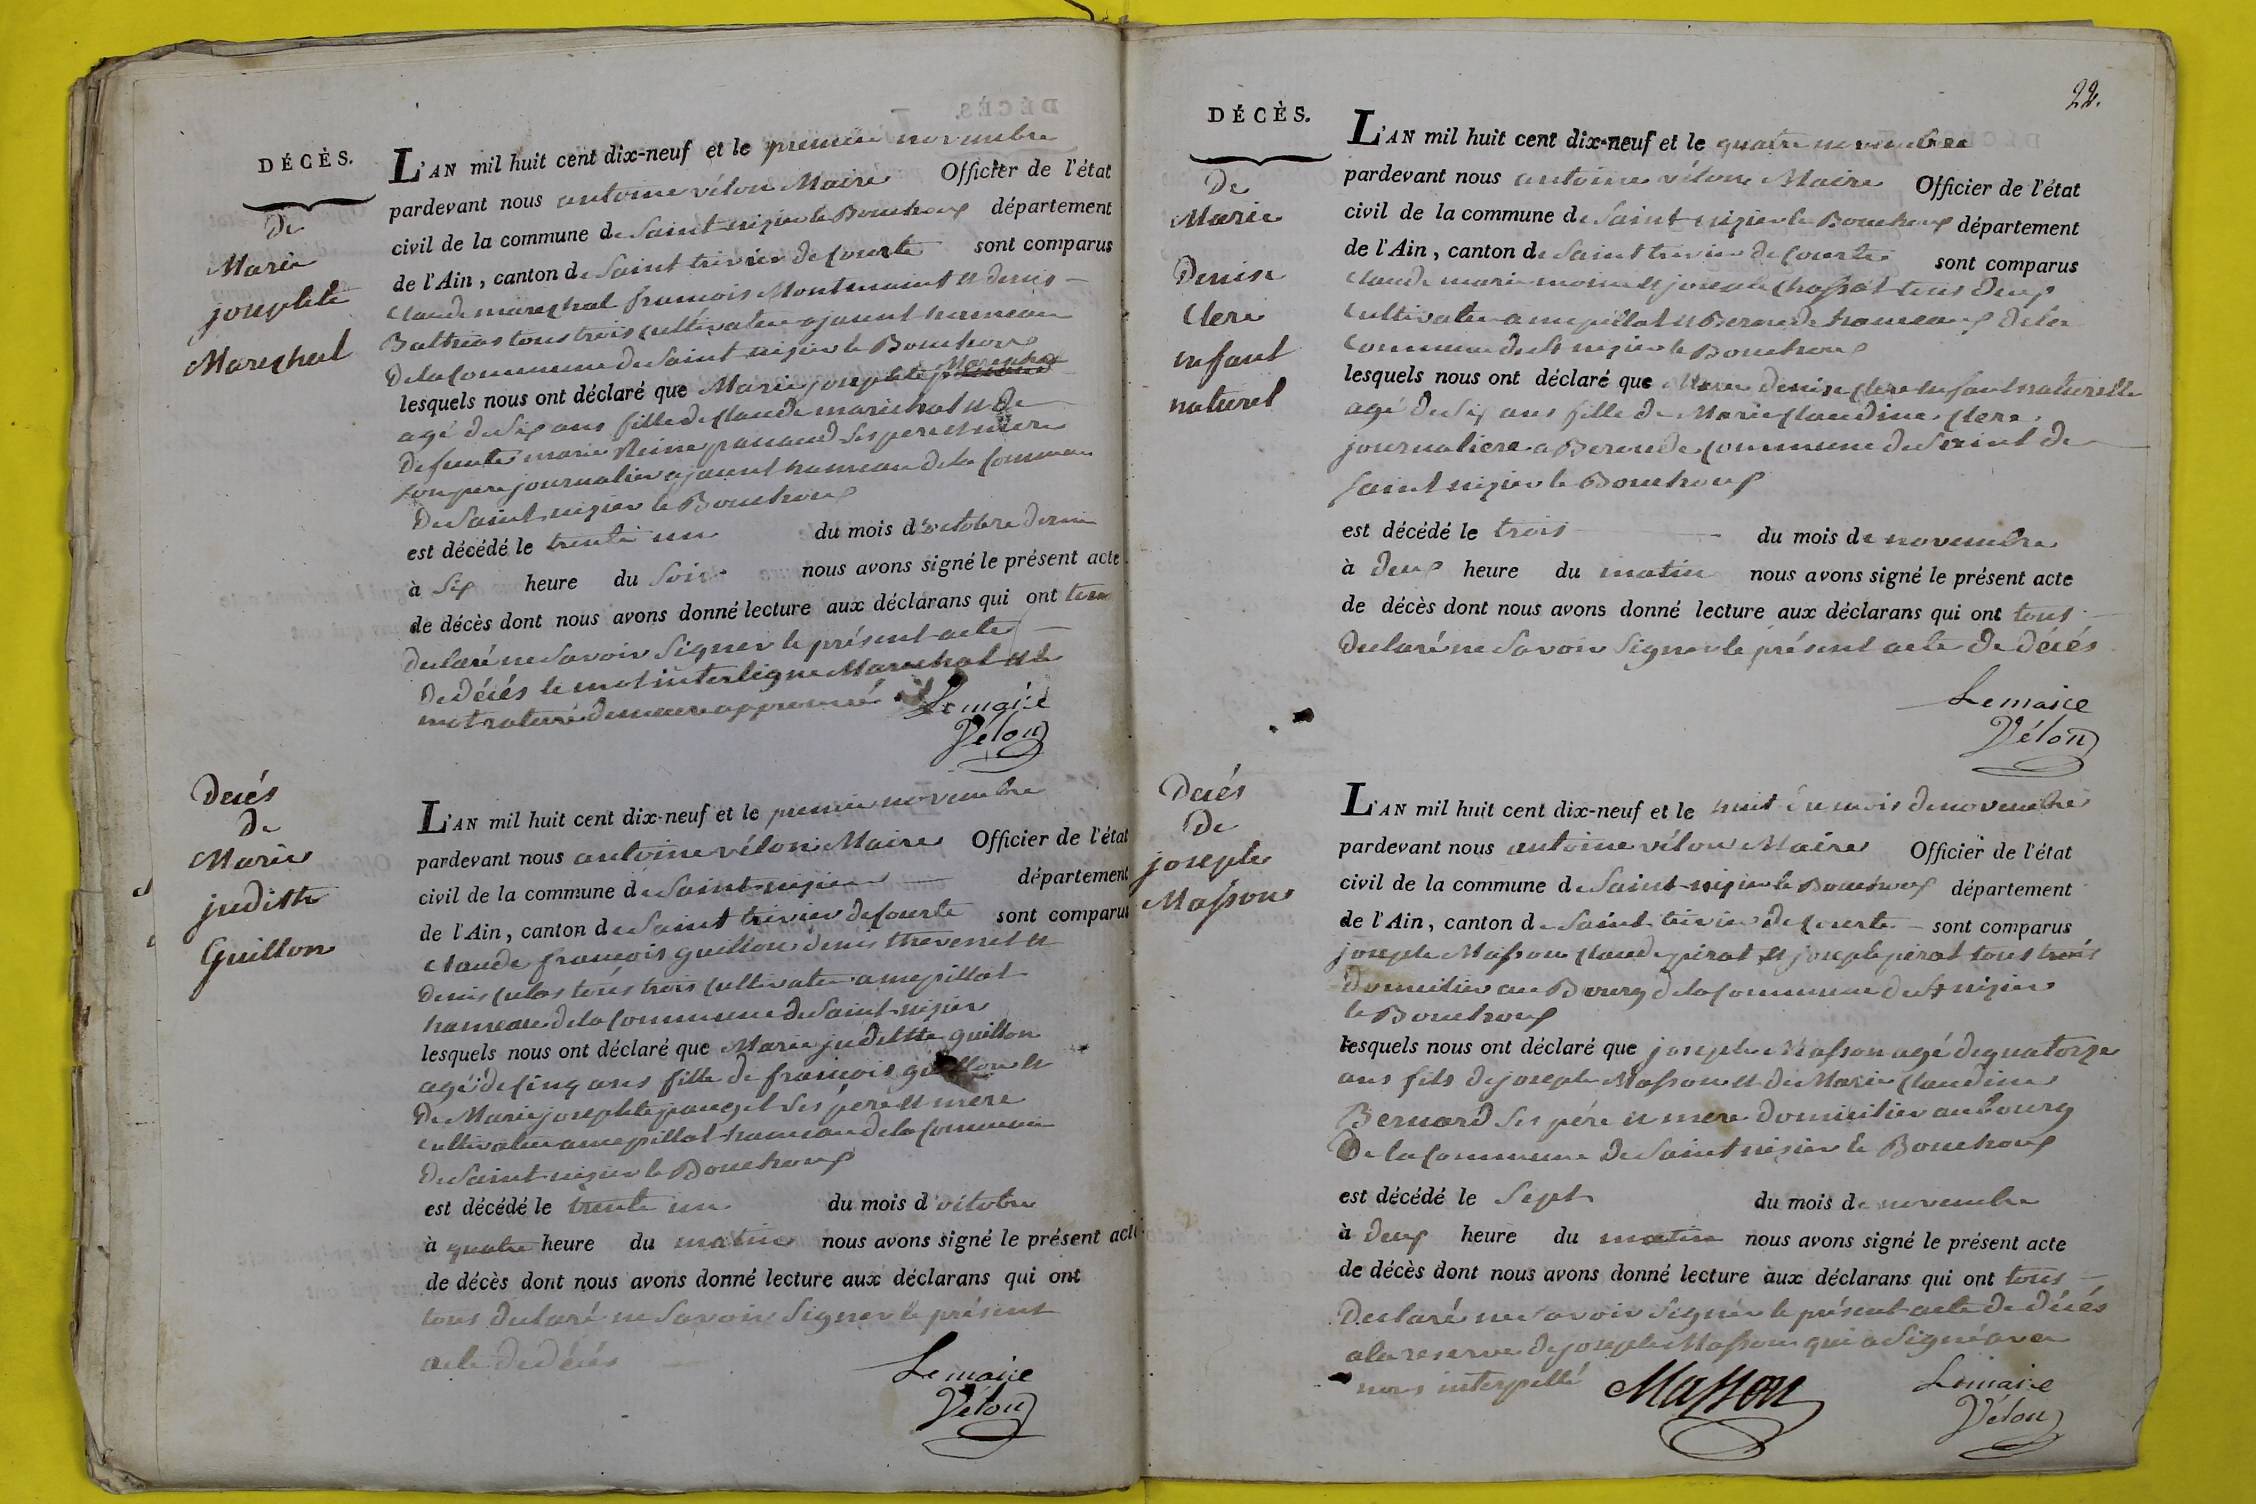 DÉCÈS.
De
Marie
josephte
Mareschal
L'AN mil huit cent dix-neuf et le premier novembre
pardevant nous antoine vélon Maire Officier de l'état
civil de la commune de Saint nizier le Bouchoux département
de l'Ain, canton de Saint trivier de Courte sont comparus
Claude mareschal francois Montenaint et denis
tous trois cultivateur ajaunt hameau
De la Commune de Saint nizier le Bouchoux
lesquels nous ont déclaré que Marie josephte Mareschal
agé de Six ans fille de Claude marechal et de
defunte marie Reine panaud Ses pere et mere
Son pere journalier ajaunt hameau de la Commune
De Saint nizier le Bouchoux
est décédé le trente un du mois d'octobre dernier
à Six heure du Soir nous avons signé le présent acte
de décès dont nous avons donné lecture aux déclarans qui ont tous
declaré ne Savoir Signer le présent acte
De décés le mot interligne Mareschal et le
mot raturé demeure approuvé Lemaire
Vélon
Decés
de
Marie
judith
Guillon
L'AN mil huit cent dix-neuf et le premier novembre
pardevant nous antoine vélon Maire Officier de l'état
civil de la commune de Saint nizier département
de l'Ain, canton de Saint trivier de Courte sont comparus
Claude francois guillon denis thevenet et
Denis culas tous trois cultivateur a mepillat
hameau de la Commune de Saint nizier
lesquels nous ont déclaré que Marie judithe guillon
agé de Cinq ans fille de francois guillon et
De Marie josephte pauget Ses pere et mere
cultivateur a mepillat hameau de la Commune
De Saint nizier le Bouchoux
est décédé le trente un du mois d'octobre
à quatre heure du matin nous avons signé le présent acte
de décès dont nous avons donné lecture aux déclarans qui ont
tous declaré ne Savoir Signer le présent
acte de décés
Lemaire
Vélon
22.
DÉCÈS.
De
Marie
Denise
Clere
enfant
naturel
L'AN mil huit cent dix-neuf et le quatre novembre
pardevant nous antoine vélon Maire Officier de l'état
civil de la commune de Saint nizier le Bouchoux département
de l'Ain, canton de Saint trivier de Courte sont comparus
Claude marie moine et joseph Chossat tous deux
Cultivateur a mepillat et Berende hameaux de la
Commune de St nizier le Bouchoux
lesquels nous ont déclaré que Marie denise Clere enfant naturelle
agé de Six ans fille de Marie Claudine Clere
journaliere a Berende commune de Saint de
Saint nizier le Bouchoux
est décédé le trois du mois de novembre
à deux heure du matin nous avons signé le présent acte
de décès dont nous avons donné lecture aux déclarans qui ont tous
Declaré ne Savoir Signer le présent acte de décés
Lemaire
Vélon
Decés
De
joseph
Masson
L'AN mil huit cent dix-neuf et le huit du mois de novembre
pardevant nous antoine vélon Maire Officier de l'état
civil de la commune de Saint nizier le Bouchoux département
de l'Ain, canton de Saint trivier de Courte sont comparus
joseph Masson Claude pirat et joseph perat tous trois
domicilier au Bourg de la Commune de St nizier
le Bouchoux
lesquels nous ont déclaré que joseph Masson agé de quatorze
ans fils de joseph Masson et de Marie Claudine
Bernard Ses pére et mere domicilier au bourg
De la Commune de Saint nizier le Bouchoux
est décédé le Sept du mois de novembre
à deux heure du matin nous avons signé le présent acte
de décès dont nous avons donné lecture aux déclarans qui ont tous
Declaré ne Savoir Signer le présent acte de décés
a la reserve de joseph Masson qui a Signé avec
nous interpellé Masson Lemaire
Vélon